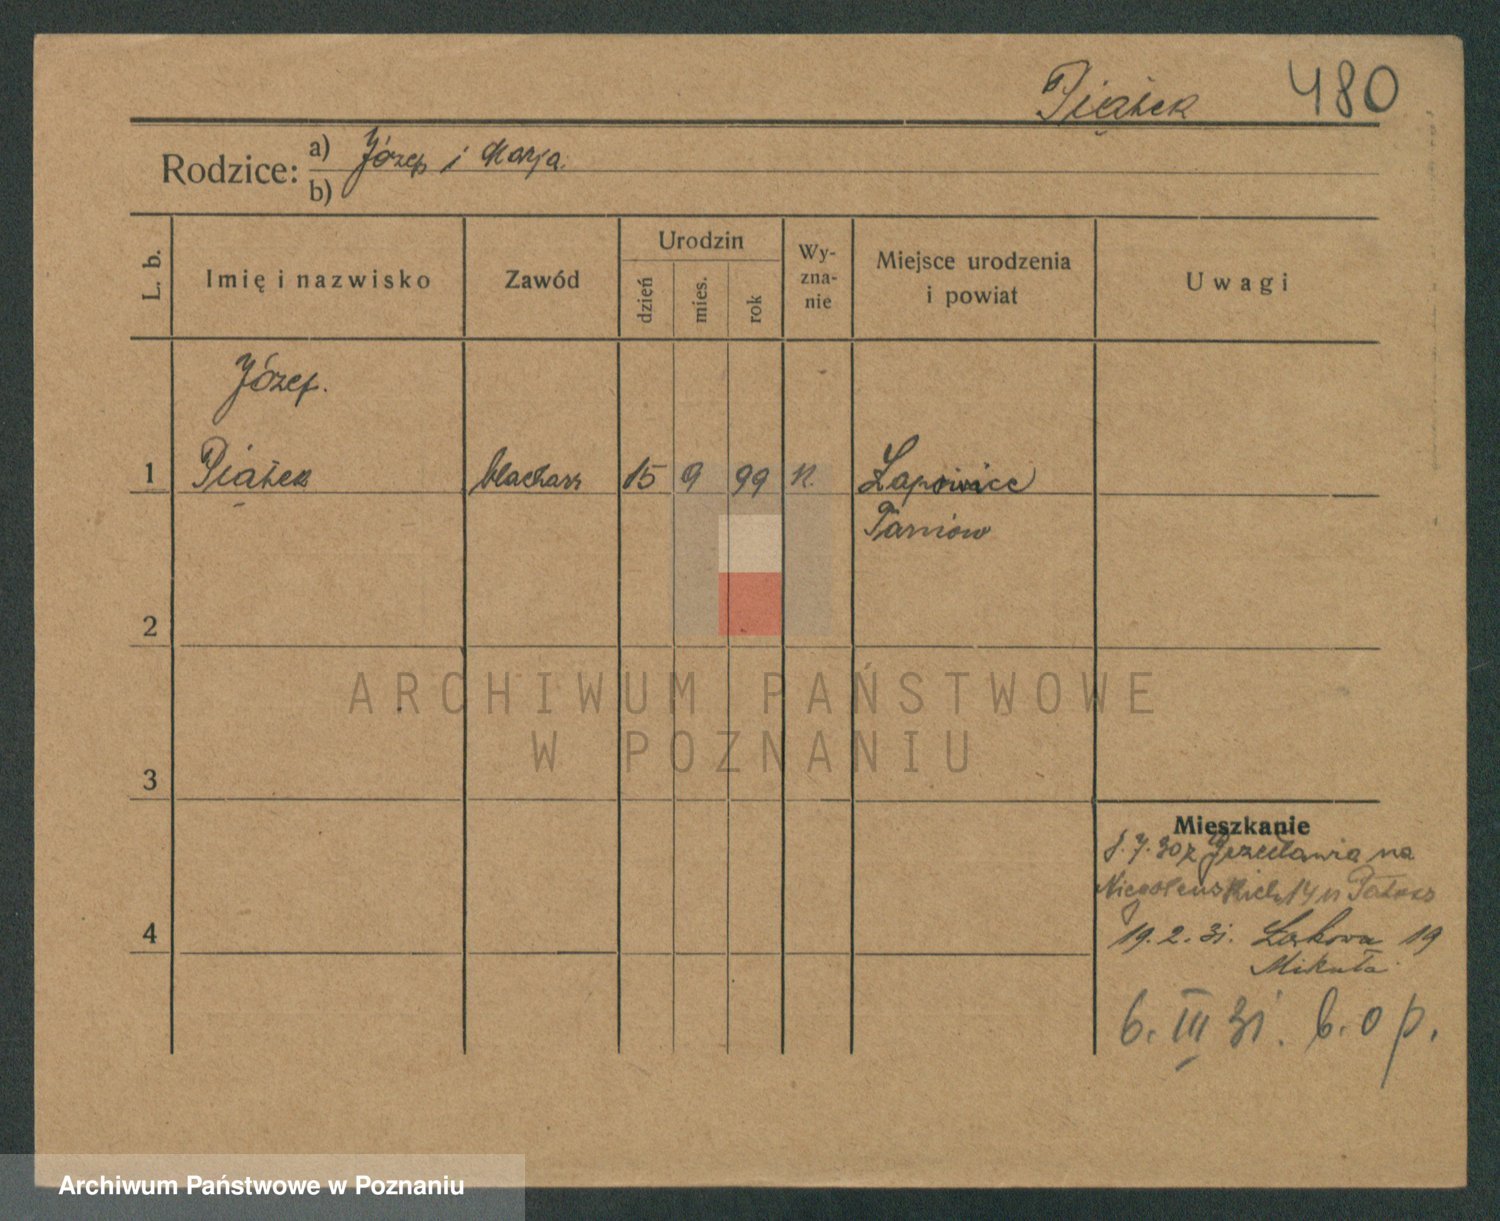 Piątek 480
Rodzice: a) Józef i Marja
b)
L. b. Imię i nazwisko Zawód Urodzin dzień mies. rok Wyznanie Miejsce urodzenia i powiat Uwagi
Józef.
1 Piątek blacharz 15 9 99 Łapowice
Tarnów
2
3
4
Mieszkanie
z na
14
19. 2. 31. Łąkowa 19
Mikuła
6. III 31. b. o p.
ARCHIWUM PAŃSTWOWE
W POZNANIU
Archiwum Państwowe w Poznaniu